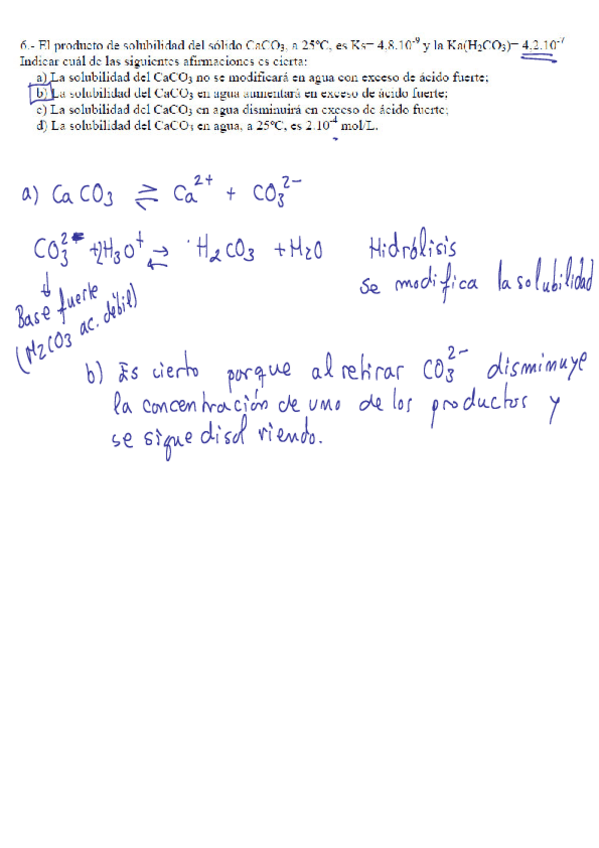 6.- El producto de solubilidad del sólido CaCO₃, a 25ºC, es Ks= 4.8.10⁻⁹ y la Ka(H₂CO₃)= 4.2.10⁻⁷
Indicar cuál de las siguientes afirmaciones es cierta:
a) La solubilidad del CaCO₃ no se modificará en agua con exceso de ácido fuerte;
b) La solubilidad del CaCO₃ en agua aumentará en exceso de ácido fuerte;
c) La solubilidad del CaCO₃ en agua disminuirá en exceso de ácido fuerte;
d) La solubilidad del CaCO₃ en agua, a 25ºC, es 2.10⁻⁴ mol/L.
a) CaCO₃ ⇌ Ca²⁺ + CO₃²⁻
CO₃²⁻ + 2H₃O⁺ ⇌ H₂CO₃ + H₂O Hidrólisis
↓ se modifica la solubilidad
Base fuerte
(H₂CO₃ ac. débil)
b) Es cierto porque al retirar CO₃²⁻ disminuye
la concentración de uno de los productos y
se sigue disolviendo.